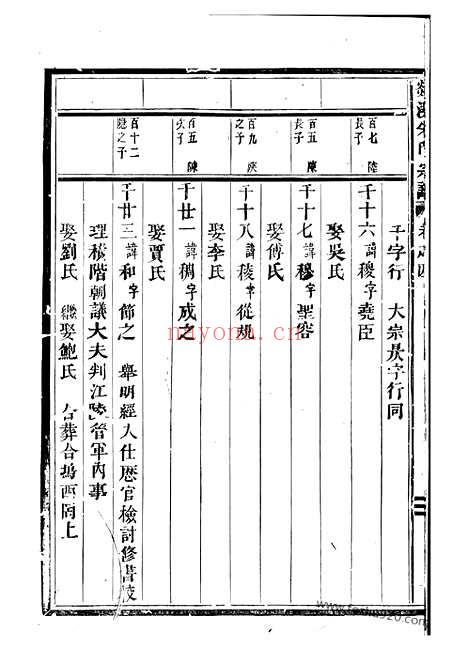 宗譜
千字行 大宗辰字行同
百七 陸
長子
千十六 諱稷字堯臣
娶吳氏
百五 陳
長子
千十七 諱穆字聖容
娶傅氏
百九 陝
之子
千十八 諱稜字從規
娶李氏
百五 陳
次子
千廿一 諱稠字成之
娶賈氏
百十二
之子
千廿三 諱和字節之 舉明經入仕歷官檢討修書校
理積階朝議大夫判江陵管軍內事
娶劉氏 繼娶鮑氏 合葬合塢西岡上
nayona.cn